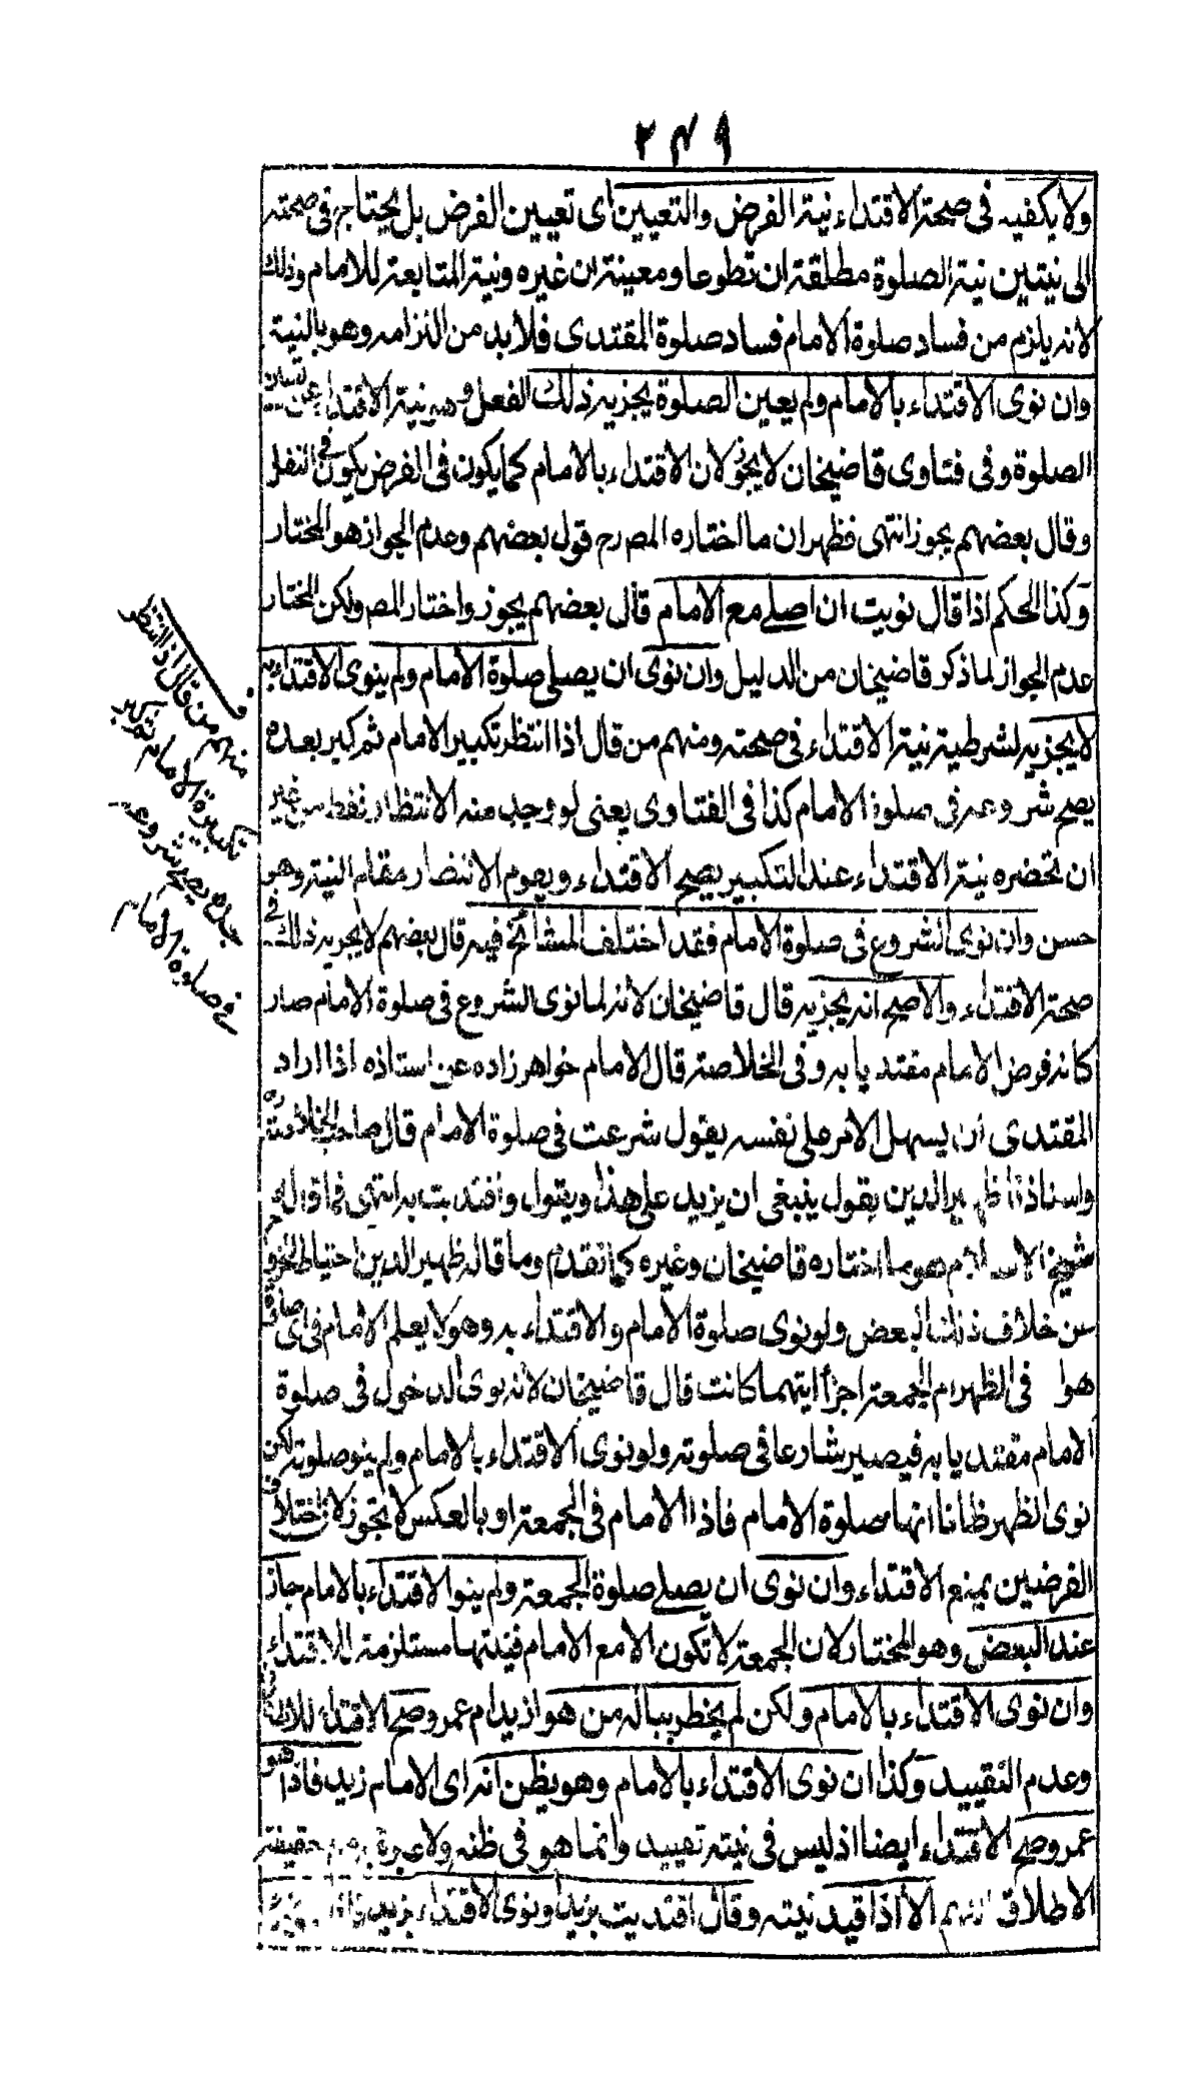 ٢٤٩
ولا يكفيه في صحة الاقتداء نية الفرض والتعيين اى تعيين الفرض بل يحتاج في صحته
الى نيتين نية الصلوة مطلقة ان تطوعا ومعينة ان غيره ونية المتابعة للامام وذلك
لانه يلزم من فساد صلوة الامام فساد صلوة المقتدى فلا بد من التزامه وهو بالنية
وان نوى الاقتداء بالامام ولم يعين الصلوة يجزيه ذلك الفعل وهو نية الاقتداء عن تعيين
الصلوة وفى فتاوى قاضيخان لا يجوز لان الاقتداء بالامام كما يكون فى الفرض يكون فى النفل
وقال بعضهم يجوز انتهى فظهر ان ما اختاره المصرح قول بعضهم وعدم الجواز هو المختار
وكذا الحكم اذا قال نويت ان اصلى مع الامام قال بعضهم يجوز واختار المص ولكن المختار
عدم الجواز لما ذكر قاضيخان من الدليل وان نوى ان يصلى صلوة الامام ولم ينوى الاقتداء به
لا يجزيه لشرطية نية الاقتداء فى صحته ومنهم من قال اذا انتظر تكبير الامام ثم كبر بعده
يصح شروعه فى صلوة الامام كذا فى الفتاوى يعنى لو وجد منه الانتظار فقط من غير
ان تحضره نية الاقتداء عند التكبير يصح الاقتداء ويقوم الانتضار مقام النية وهو
حسن وان نوى الشروع فى صلوة الامام فقد اختلف المشائخ فيه قال بعضهم لا يجزيه ذلك فى
صحة الاقتداء والاصح انه يجزيه قال قاضيخان لانه لما نوى الشروع فى صلوة الامام صار
كانه فرض الامام مقتديا به وفى الخلاصة قال الامام خواهر زاده عن استاذه اذا اراد
المقتدى ان يسهل الامر على نفسه يقول شرعت فى صلوة الامام قال صاحب الخلاصة ره
واستاذنا ظهير الدين يقول ينبغى ان يزيد على هذا ويقول واقتديت به انتهى فما قاله
شيخ الاسلام هو ما اختاره قاضيخان وغيره كما تقدم وما قاله ظهير الدين احتياط للخروج
من خلاف ذلك البعض ولو نوى صلوة الامام والاقتداء به وهو لا يعلم الامام فى اى صلوة
هوا فى الظهر ام الجمعة اجزأ ايتهما كانت قال قاضيخان لانه نوى الدخول فى صلوة
الامام مقتديا به فيصير شارعا فى صلوته ولو نوى الاقتداء بالامام ولم ينو صلوته لكن
نوى الظهر ظانا انها صلوة الامام فاذا الامام فى الجمعة او بالعكس لا تجوز لان اختلاف
الفرضين يمنع الاقتداء وان نوى ان يصلى صلوة الجمعة ولم ينو الاقتداء بالامام جاز
عند البعض وهو المختار لان الجمعة لا تكون الا مع الامام فنيتها مستلزمة للاقتداء
وان نوى الاقتداء بالامام ولكن لم يخطر بباله من هو ازيد ام عمرو صح الاقتداء للاطلاق
وعدم التقييد وكذا ان نوى الاقتداء بالامام وهو يظن انه راى الامام زيد فاذا هو
عمرو صح الاقتداء ايضا اذ ليس فى نيته تقييد وانما هو فى ظنه ولا عبرة حقيقة
الاطلاق الا اذا قيد نيته وقال اقتديت بزيد او نوى الاقتداء بزيد
ومنهم من قال اذا انتظر
تكبيرة الامام ثم كبر
بعده يصح شروعه
فى صلوة الامام